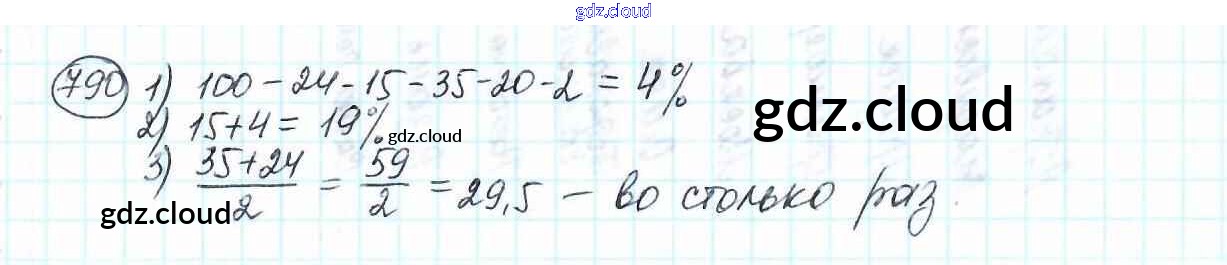 gdz.cloud
790 1) 100 - 24 - 15 - 35 - 20 - 2 = 4%
gdz.cloud
2) 15 + 4 = 19%
gdz.cloud
3) (35+24)/2 = 59/2 = 29,5 – во столько раз.
gdz.cloud